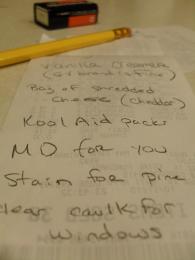 Vanilla Creamer
(GV brand is fine)
Bag of shredded
cheese (cheddar)
Kool Aid packs
MD for you
Stain for pine
clear caulk for
windows